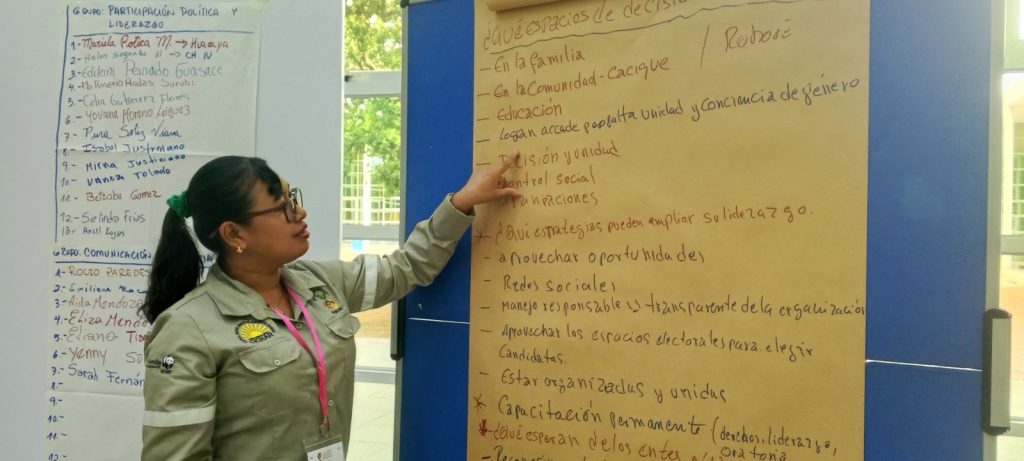 GRUPO: PARTICIPACIÓN POLÍTICA Y
LIDERAZGO
1.- Mariela Potica M. → Huacaya
2.- Helen Segundo N → CH. IV
3.- Edileini Peinado Guasace
4.- Ma Rosario Rodas Surubi
5.- Celia Gutierrez Flores
6.- Yovana Moreno
7- Pura Soliz Viana
8- Isabel Justiniano
9- Mirna Justiniano
10- Vaneza Toledo
11- Betzabe Gomez
12- Selinda Frias
13-
GRUPO: COMUNICACIÓN
1- ROCIO PAREDES
2- Emiliana
3- Aida Mendoza
4- Eliza Mend
5- Eliana
6- Yenny
7.- Sarah Fernán
8.-
9.-
10.-
11.-
12.-
¿Qué espacios de decisi
- En la familia / Roboré
- En la Comunidad - Cacique
- Educación
- Logran accede por falta unidad y conciencia de género
- Decisión y unidad
control social
organizaciones
* ¿Qué estrategias pueden ampliar su liderazgo.
- aprovechar oportunidades
- Redes sociales
- Manejo responsable y transparente de la organización
- Aprovechar los espacios electorales para elegir
candidatas.
- Estar organizadas y unidas
* Capacitación permanente (derechos, liderazgo,
oratoria
* ¿Qué esperan de los entes